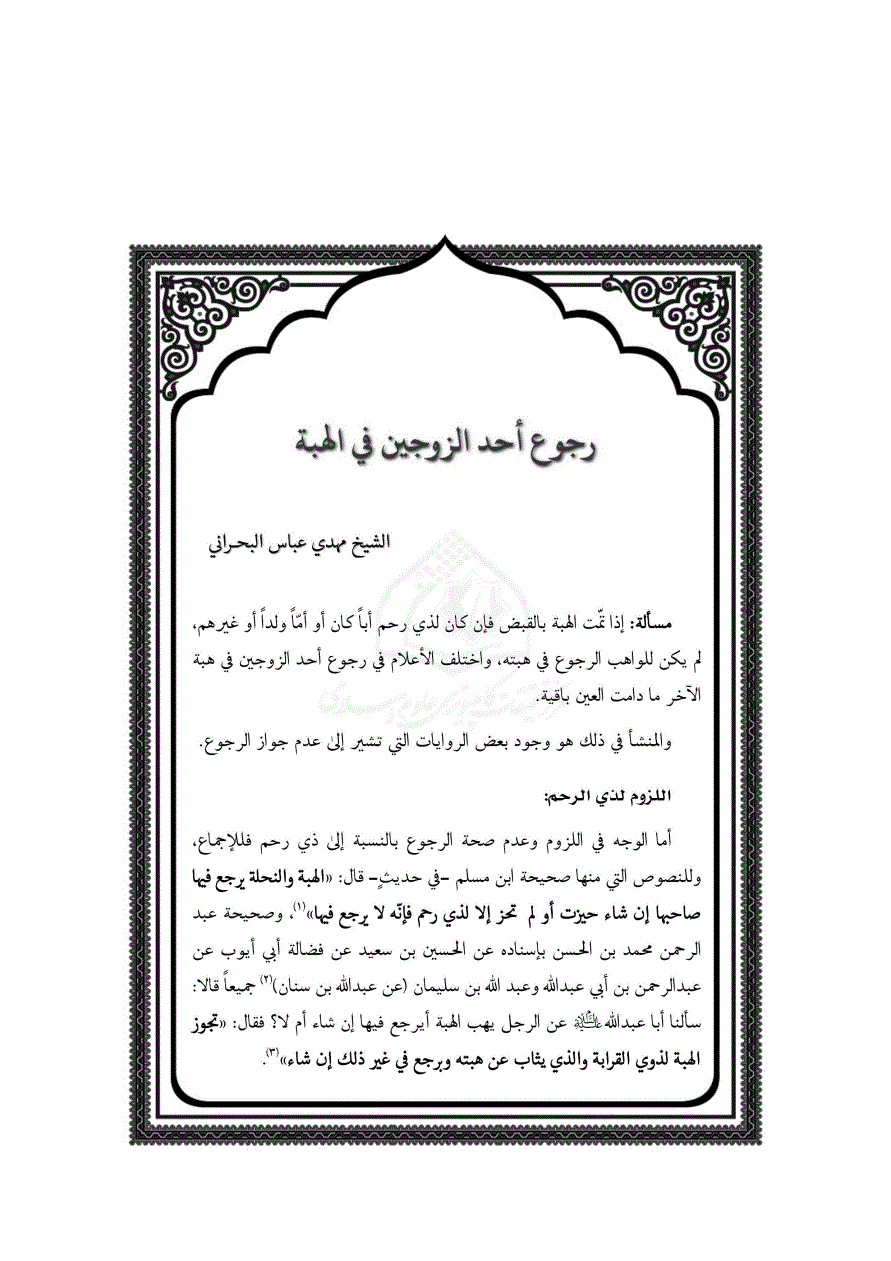 رجوع أحد الزوجين في الهبة
الشيخ مهدي عباس البحراني
مسألة: إذا تمّت الهبة بالقبض فإن كان لذي رحم أباً كان أو أمّاً ولداً أو غيرهم،
لم يكن للواهب الرجوع في هبته، واختلف الأعلام في رجوع أحد الزوجين في هبة
الآخر ما دامت العين باقية.
والمنشأ في ذلك هو وجود بعض الروايات التي تشير إلىٰ عدم جواز الرجوع.
اللزوم لذي الرحم:
أما الوجه في اللزوم وعدم صحة الرجوع بالنسبة إلىٰ ذي رحم فللإجماع،
وللنصوص التي منها صحيحة ابن مسلم -في حديثٍ- قال: «الهبة والنحلة يرجع فيها
صاحبها إن شاء حيزت أو لم تحز إلا لذي رحم فإنّه لا يرجع فيها»(١)، وصحيحة عبد
الرحمن محمد بن الحسن بإسناده عن الحسين بن سعيد عن فضالة أبي أيوب عن
عبدالرحمن بن أبي عبدالله وعبد الله بن سليمان (عن عبدالله بن سنان)(٢) جميعاً قالا:
سألنا أبا عبدالله عليه السلام عن الرجل يهب الهبة أيرجع فيها إن شاء أم لا؟ فقال: «تجوز
الهبة لذوي القرابة والذي يثاب عن هبته ويرجع في غير ذلك إن شاء»(٣).